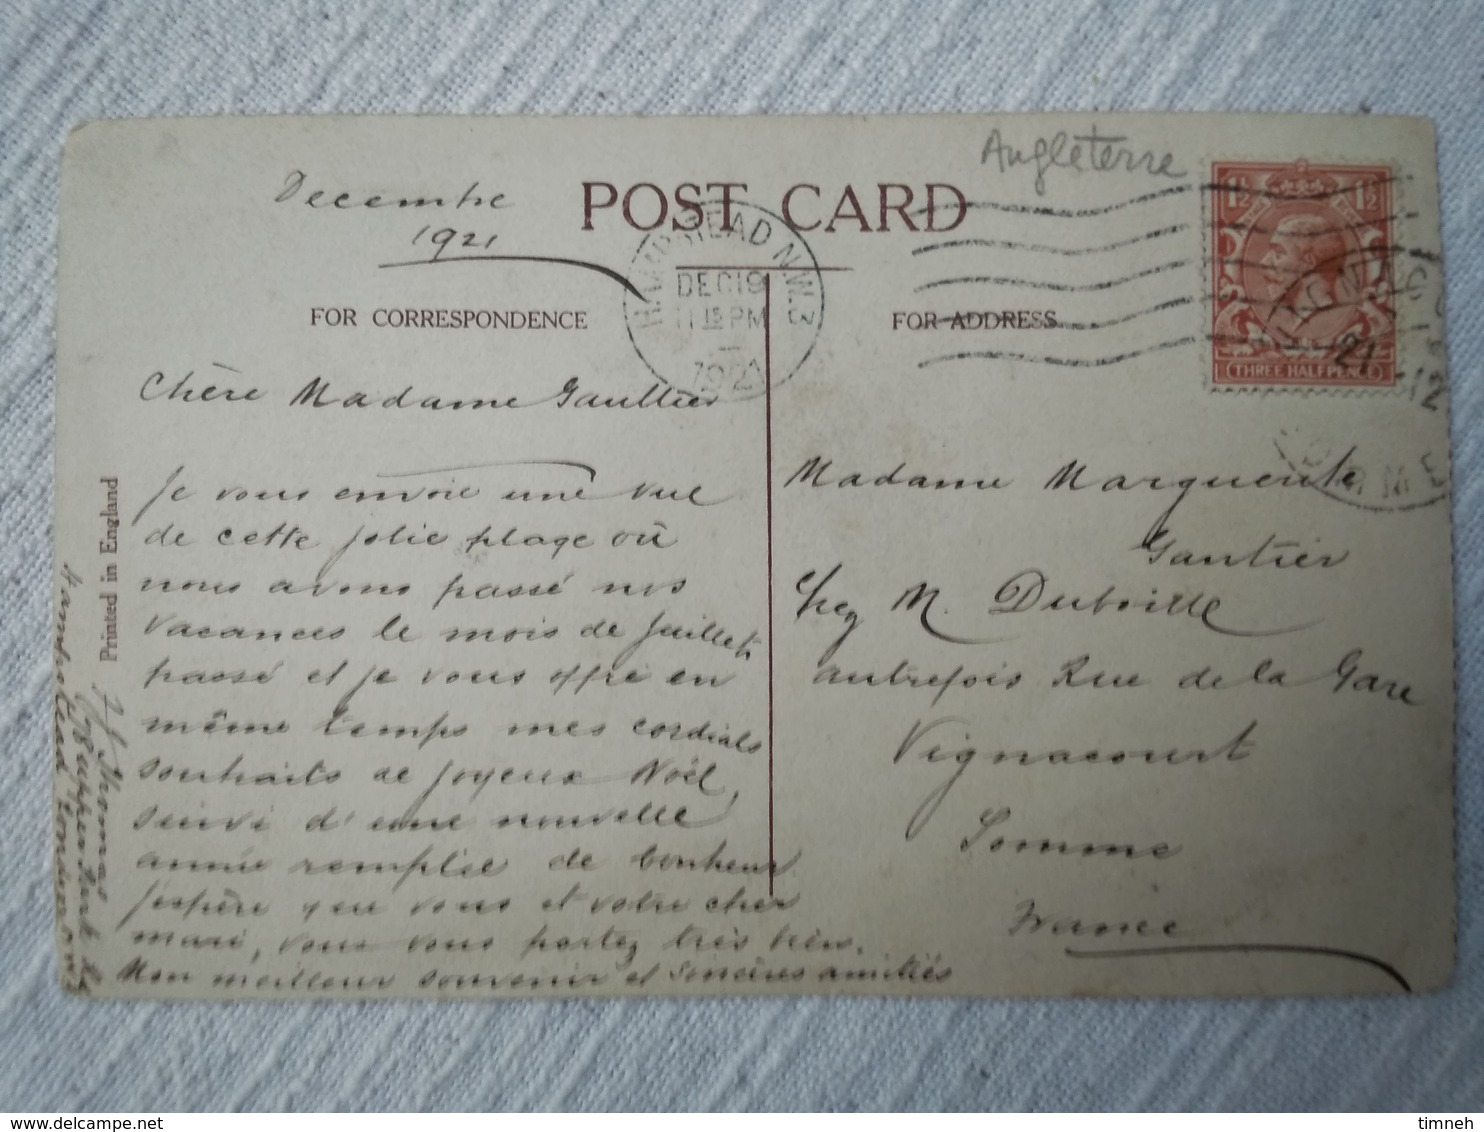 Angleterre
Decembre
1921
POST CARD
FOR CORRESPONDENCE
FOR ADDRESS
HAMPSTEAD N.W.3
DEC 19
11 15 PM
1921
1½ 1½
THREE HALFPENCE
21 -12
Chère Madame Gaultier
Je vous envoie une vue
de cette jolie plage où
nous avons passé nos
vacances le mois de Juillet
passé et je vous offre en
même temps mes cordials
souhaits de Joyeux Noël,
suivi d'une nouvelle
année remplie de bonheur
J'espère que vous et votre cher
mari, vous vous portez très bien.
Mon meilleur souvenir et sincères amitiés
Madame Marguerite
Gautier
Chez M. Duboille
autrefois Rue de la Gare
Vignacourt
Somme
France
Printed in England
Thomas
Upper Park
Hampstead London N.W.3
timneh